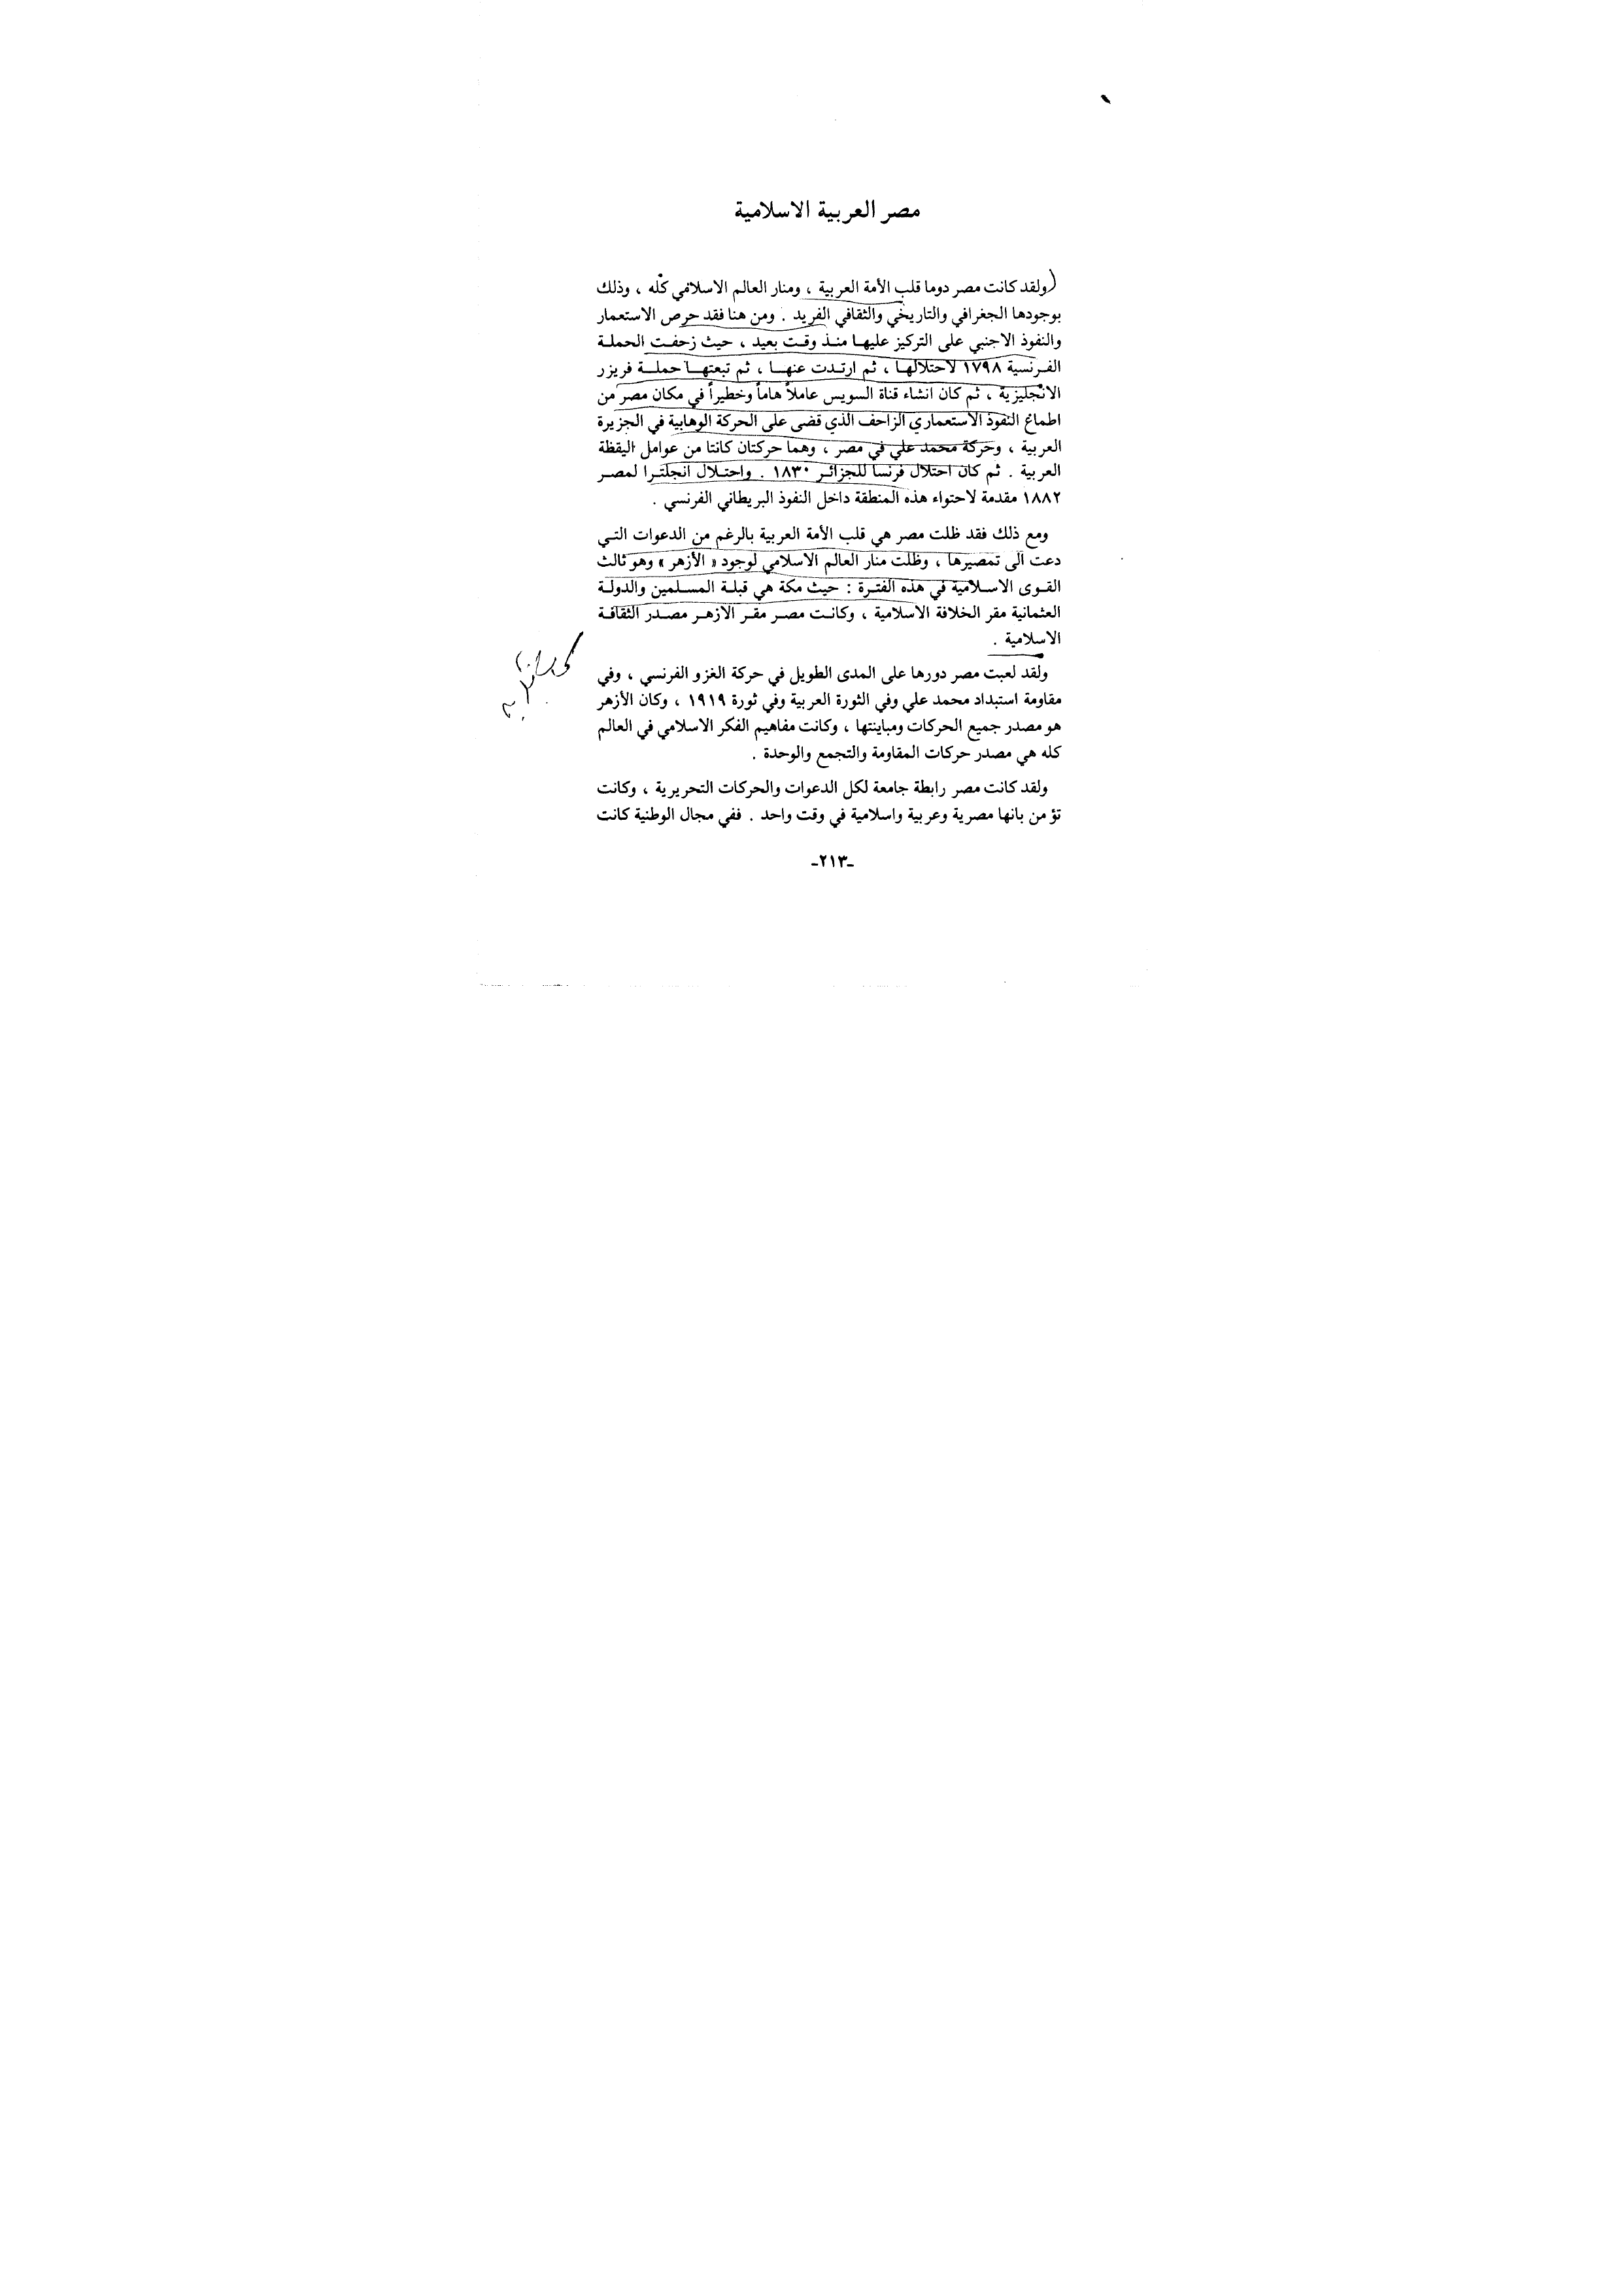 مصر العربية الاسلامية
ولقد كانت مصر دوما قلب الأمة العربية ، ومنار العالم الاسلامي كله ، وذلك
بوجودها الجغرافي والتاريخي والثقافي الفريد . ومن هنا فقد حرص الاستعمار
والنفوذ الاجنبي على التركيز عليها منذ وقت بعيد ، حيث زحفت الحملة
الفرنسية ١٧٩٨ لاحتلالها ، ثم ارتدت عنها ، ثم تبعتها حملة فريزر
الانجليزية ، ثم كان انشاء قناة السويس عاملاً هاماً وخطيراً في مكان مصر من
اطماع النفوذ الاستعماري الزاحف الذي قضى على الحركة الوهابية في الجزيرة
العربية ، وحركة محمد علي في مصر ، وهما حركتان كانتا من عوامل اليقظة
العربية . ثم كان احتلال فرنسا للجزائر ١٨٣٠ . واحتلال انجلترا لمصر
١٨٨٢ مقدمة لاحتواء هذه المنطقة داخل النفوذ البريطاني الفرنسي .
ومع ذلك فقد ظلت مصر هي قلب الأمة العربية بالرغم من الدعوات التي
دعت الى تمصيرها ، وظلت منار العالم الاسلامي لوجود « الأزهر » وهو ثالث
القوى الاسلامية في هذه الفترة : حيث مكة هي قبلة المسلمين والدولة
العثمانية مقر الخلافة الاسلامية ، وكانت مصر مقر الازهر مصدر الثقافة
الاسلامية .
ولقد لعبت مصر دورها على المدى الطويل في حركة الغزو الفرنسي ، وفي
مقاومة استبداد محمد علي وفي الثورة العربية وفي ثورة ١٩١٩ ، وكان الأزهر
هو مصدر جميع الحركات ومباينتها ، وكانت مفاهيم الفكر الاسلامي في العالم
كله هي مصدر حركات المقاومة والتجمع والوحدة .
ولقد كانت مصر رابطة جامعة لكل الدعوات والحركات التحريرية ، وكانت
تؤمن بانها مصرية وعربية واسلامية في وقت واحد . ففي مجال الوطنية كانت
-٢١٣-